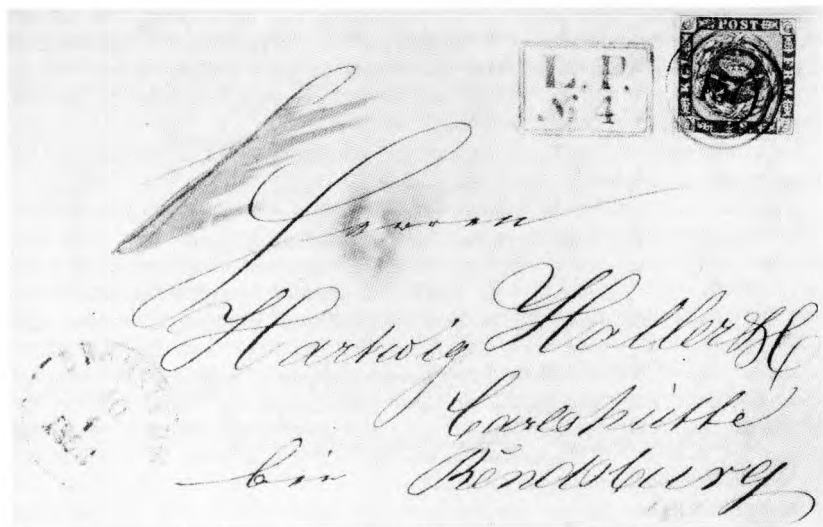 POST
KGL
FRM
L. P.
№ 4
Herren
Hartwig Holler & C
Carlshütte
bei Rendsburg